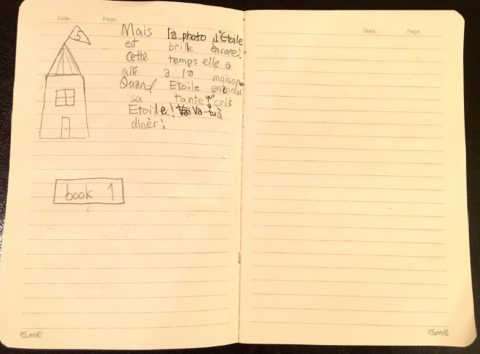 Date. Page.
5
Mais la photo d'Etoile
est brille encore!
cette temps elle a
allé a la maison
Quand Etoile
sa tante cris
Etoile! Va
dînêr!
book 1
ISME
Date. Page.
ISME